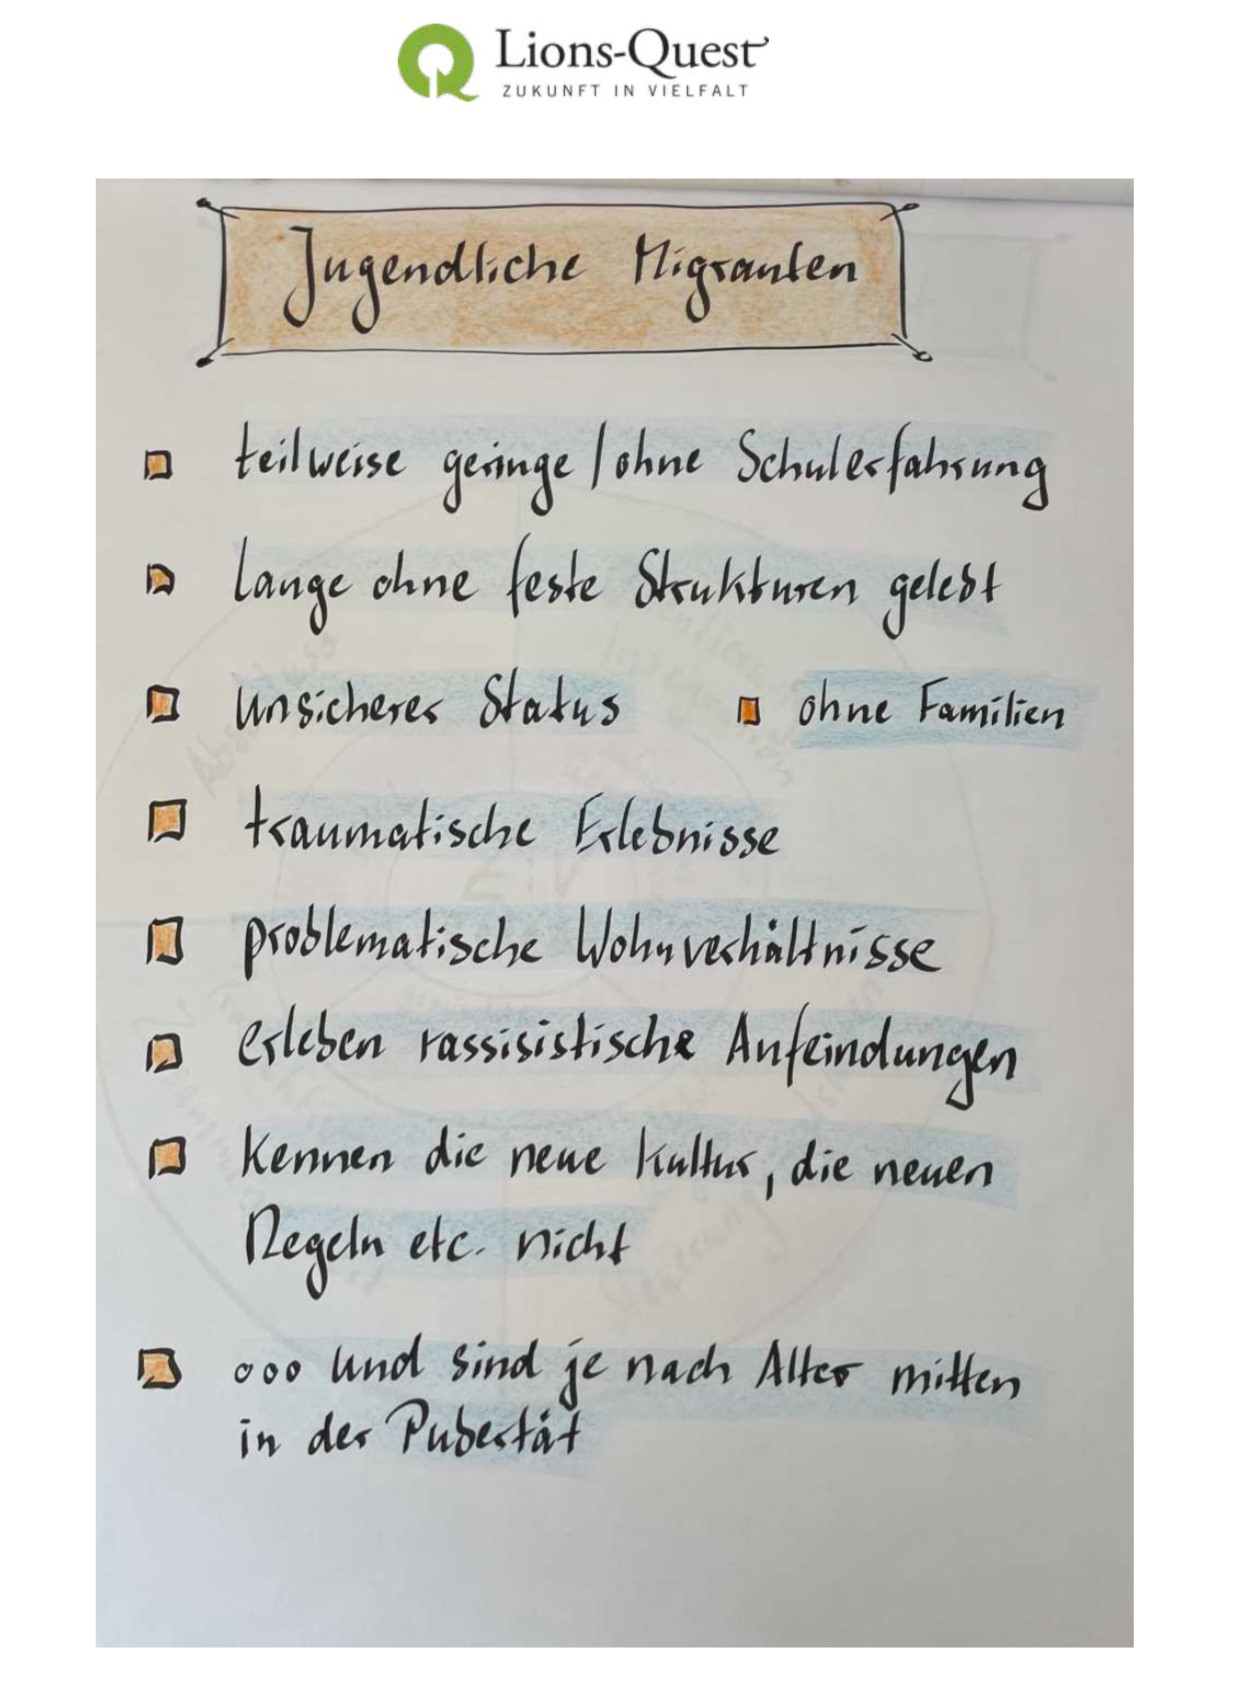 Lions-Quest
ZUKUNFT IN VIELFALT
Jugendliche Migranten
teilweise geringe / ohne Schulerfahrung
lange ohne feste Strukturen gelebt
unsicherer Status
ohne Familien
traumatische Erlebnisse
problematische Wohnverhältnisse
erleben rassisistische Anfeindungen
kennen die neue Kultur, die neuen
Regeln etc. nicht
ooo und sind je nach Alter mitten
in der Pubertät